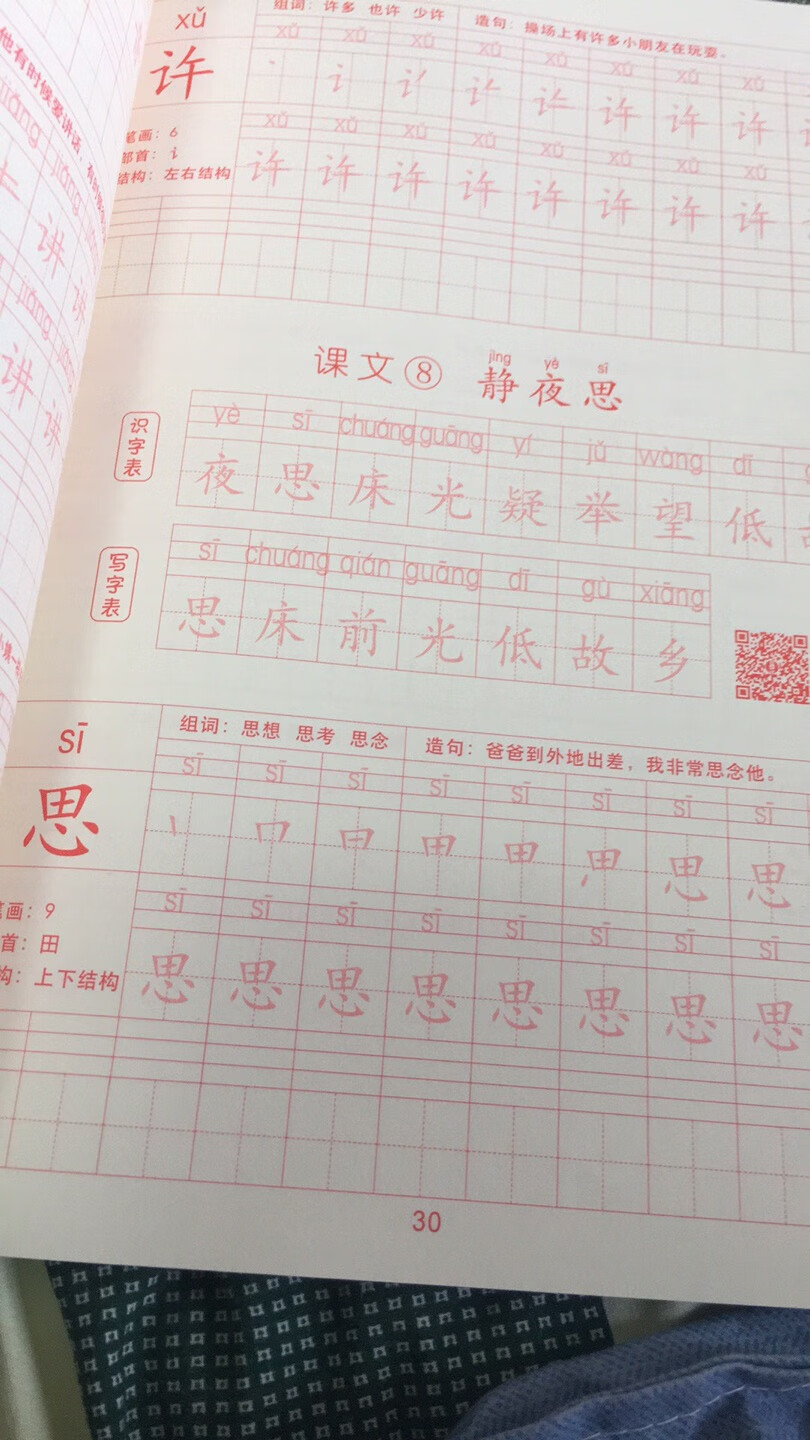 xǔ
组词：许多 也许 少许 造句：操场上有许多小朋友在玩耍。
xǔ xǔ xǔ xǔ xǔ xǔ xǔ xǔ
许
许 许 许 许
笔画：6
部首：讠
结构：左右结构
xǔ xǔ xǔ xǔ xǔ xǔ xǔ xǔ
许 许 许 许 许 许 许 许
他有时候爱讲话，有时
jiǎng jiǎng
讲 讲
jiǎng jiǎng
讲 讲
课文⑧ 静夜思
jìng yè sī
识字表
yè sī chuáng guāng yí jǔ wàng dī
夜 思 床 光 疑 举 望 低
写字表
sī chuáng qián guāng dī gù xiāng
思 床 前 光 低 故 乡
sī
组词：思想 思考 思念 造句：爸爸到外地出差，我非常思念他。
sī sī sī sī sī sī sī sī
思
思 思
笔画：9
首：田
构：上下结构
sī sī sī sī sī sī sī sī
思 思 思 思 思 思 思 思
30